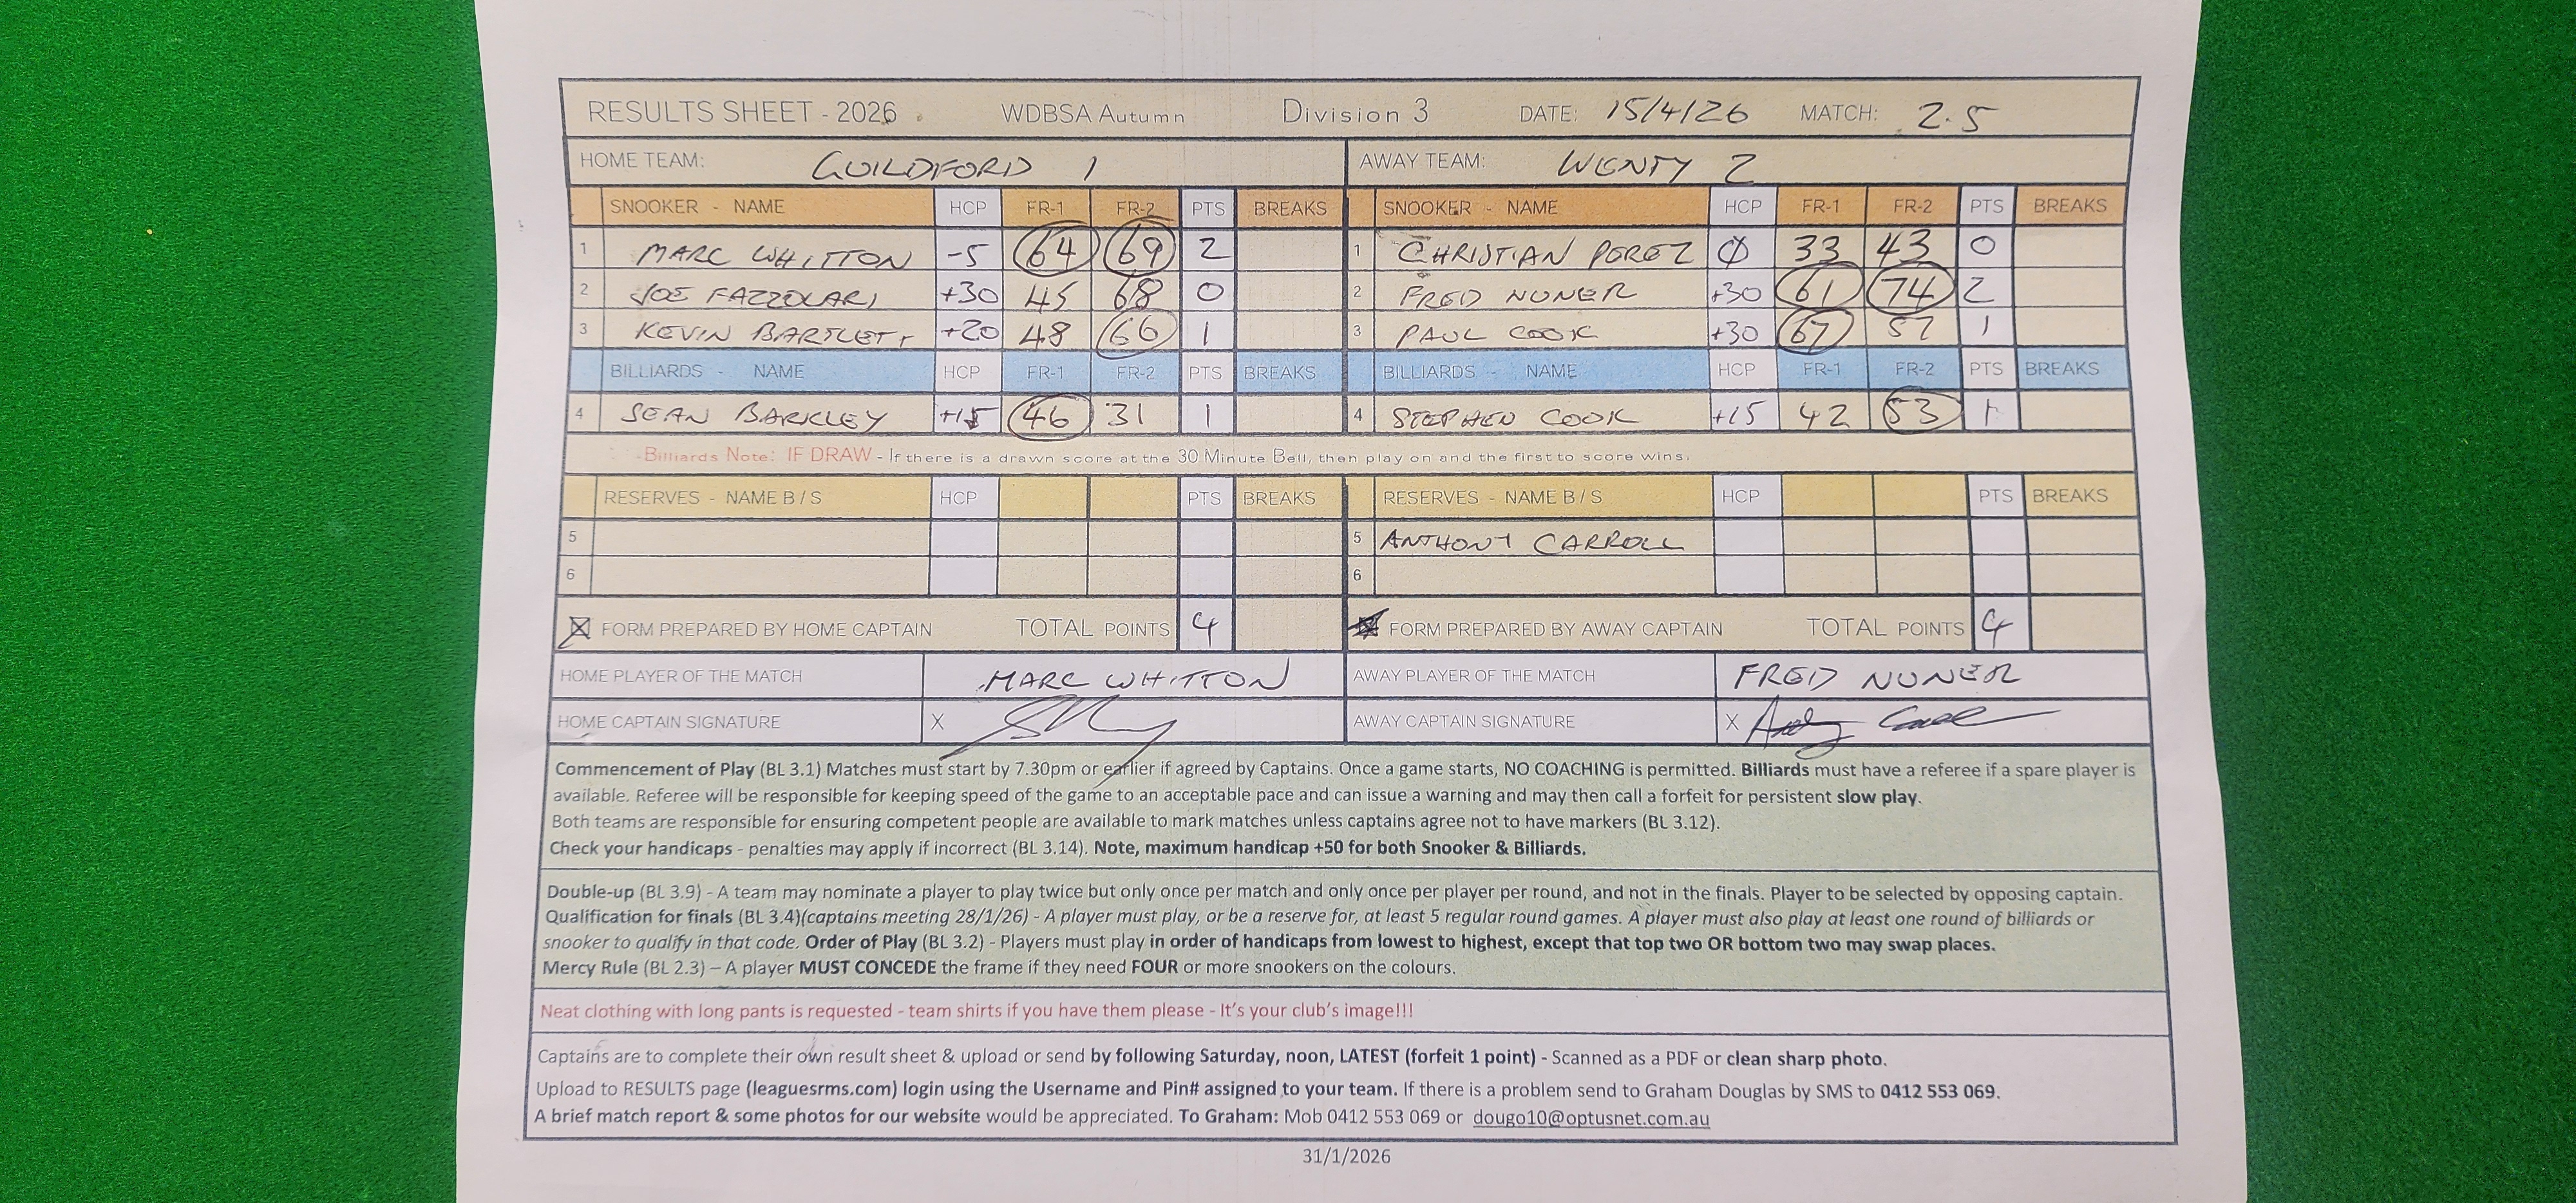 RESULTS SHEET - 2026 WDBSA Autumn Division 3 DATE: 15/4/26 MATCH: 2.5
HOME TEAM: GUILDFORD 1 AWAY TEAM: WENTY 2
SNOOKER - NAME HCP FR-1 FR-2 PTS BREAKS SNOOKER - NAME HCP FR-1 FR-2 PTS BREAKS
1 MARC WHITTON -5 64 69 2 1 CHRISTIAN PEREZ 0 33 43 0
2 JOE FAZZOLARI +30 45 68 0 2 FRED NUNER +30 61 74 2
3 KEVIN BARTLETT +20 48 66 1 3 PAUL COOK +30 67 57 1
BILLIARDS - NAME HCP FR-1 FR-2 PTS BREAKS BILLIARDS - NAME HCP FR-1 FR-2 PTS BREAKS
4 SEAN BARKLEY +15 46 31 1 4 STEPHEN COOK +15 42 53 1
-Billiards Note: IF DRAW - If there is a drawn score at the 30 Minute Bell, then play on and the first to score wins.
RESERVES - NAME B / S HCP PTS BREAKS RESERVES - NAME B / S HCP PTS BREAKS
5 5 ANTHONY CARROLL
6 6
FORM PREPARED BY HOME CAPTAIN TOTAL POINTS 4 FORM PREPARED BY AWAY CAPTAIN TOTAL POINTS 4
HOME PLAYER OF THE MATCH MARC WHITTON AWAY PLAYER OF THE MATCH FRED NUNER
HOME CAPTAIN SIGNATURE X AWAY CAPTAIN SIGNATURE X
Commencement of Play (BL 3.1) Matches must start by 7.30pm or earlier if agreed by Captains. Once a game starts, NO COACHING is permitted. Billiards must have a referee if a spare player is
available. Referee will be responsible for keeping speed of the game to an acceptable pace and can issue a warning and may then call a forfeit for persistent slow play.
Both teams are responsible for ensuring competent people are available to mark matches unless captains agree not to have markers (BL 3.12).
Check your handicaps - penalties may apply if incorrect (BL 3.14). Note, maximum handicap +50 for both Snooker & Billiards.
Double-up (BL 3.9) - A team may nominate a player to play twice but only once per match and only once per player per round, and not in the finals. Player to be selected by opposing captain.
Qualification for finals (BL 3.4)(captains meeting 28/1/26) - A player must play, or be a reserve for, at least 5 regular round games. A player must also play at least one round of billiards or
snooker to qualify in that code. Order of Play (BL 3.2) - Players must play in order of handicaps from lowest to highest, except that top two OR bottom two may swap places.
Mercy Rule (BL 2.3) – A player MUST CONCEDE the frame if they need FOUR or more snookers on the colours.
Neat clothing with long pants is requested - team shirts if you have them please - It's your club's image!!!
Captains are to complete their own result sheet & upload or send by following Saturday, noon, LATEST (forfeit 1 point) - Scanned as a PDF or clean sharp photo.
Upload to RESULTS page (leaguesrms.com) login using the Username and Pin# assigned to your team. If there is a problem send to Graham Douglas by SMS to 0412 553 069.
A brief match report & some photos for our website would be appreciated. To Graham: Mob 0412 553 069 or dougo10@optusnet.com.au
31/1/2026